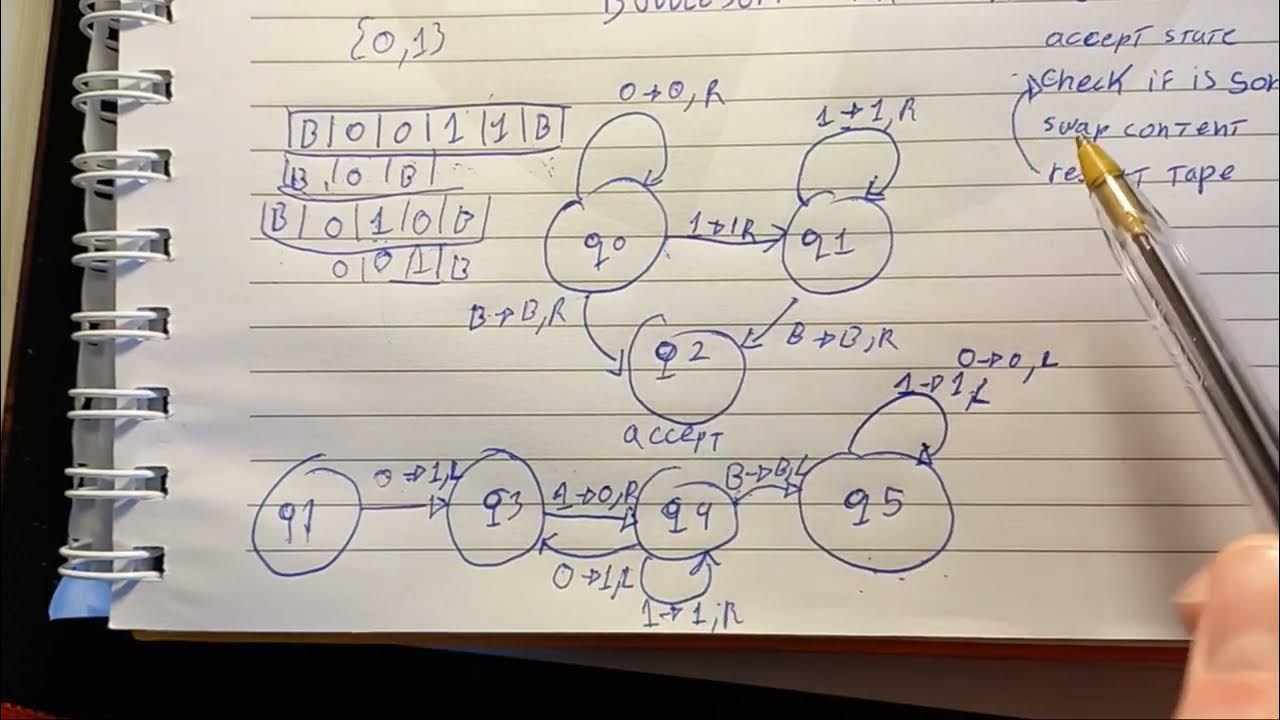 {0,1}
accept state
check if is
swap content
tape
|B|0|0|1|1|B|
B|0|B|
|B|0|1|0|B|
0|0|1|B
0→0,R
1→1,R
q0
1→1R
q1
B→B,R
B→B,R
q2
accept
0→0,L
1→1,L
q1
0→1,L
q3
1→0,R
q4
B→B,L
q5
0→1,L
1→1,R